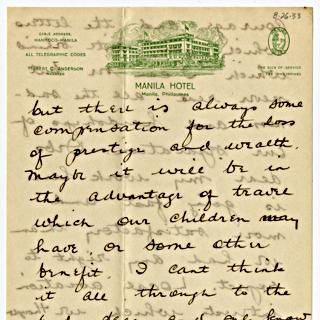 8-26-33
CABLE ADDRESS
MANHOCO-MANILA
ALL TELEGRAPHIC CODES
ANDERSON
MANAGER
THE SIGN OF SERVICE
IN THE PHILIPPINES
MANILA HOTEL
Manila, Philippines
but there is always some
compensation for the loss
of prestige and wealth.
Maybe it will be in
the advantage of travel
which our children may
have, or some other
benefit. I cant think
it all through to the